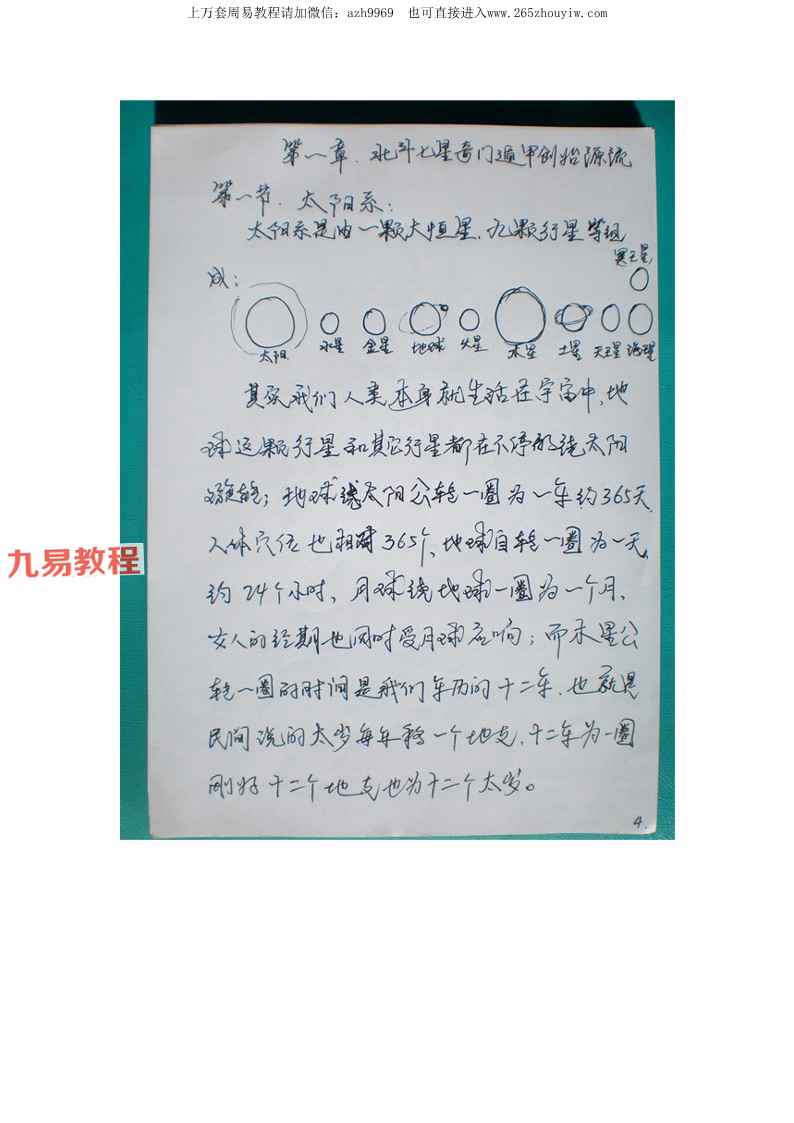 上万套周易教程请加微信：azh9969 也可直接进入www.265zhouyiw.com
第一章、北斗七星奇门遁甲创始源流
第一节、太阳系：
太阳系是由一颗大恒星、九颗行星等组
冥王星
成：
太阳 水星 金星 地球 火星 木星 土星 天王星 海王星
其实我们人类本身就生活在宇宙中，地
球这颗行星和其它行星都在不停的绕太阳
旋转；地球绕太阳公转一圈为一年约365天
人体穴位也相对365个，地球自转一圈为一天，
九易教程
约24个小时、月球绕地球一圈为一个月、
女人的经期也同时受月球影响；而木星公
转一圈的时间是我们年历的十二年、也就是
民间说的太岁每年移一个地支，十二年为一圈
刚好十二个地支也为十二个太岁。
4.